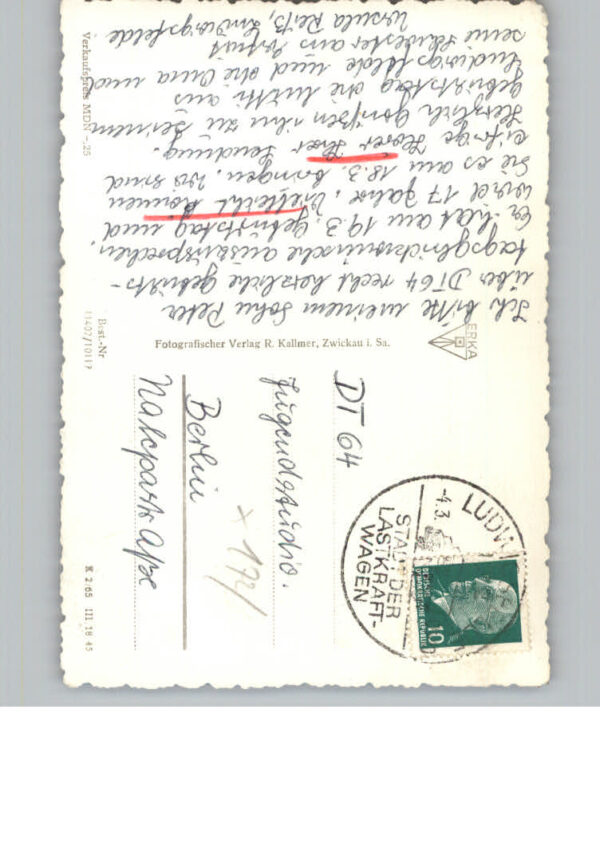 Ich bitte meinem Sohn Peter
über DT 64 recht herzliche Geburts-
tagsglückwünsche auszusprechen.
Er hat am 19.3. Geburtstag und
wird 17 Jahre. Vielleicht können
Sie es am 18.3. bringen, wir sind
eifrige Hörer Ihrer Sendung.
Herzlich grüßen ihn zu seinem
Geburtstag die Mutti aus
Ludwigsfelde und die Oma und
seine Schwester aus Erfurt
Ursula Reitz, Ludwigsfelde
Verkaufspreis MDN -.25
Best.-Nr
11407/1011?
Fotografischer Verlag R. Kallmer, Zwickau i. Sa.
ERKA
DT 64
Jugendstudio.
Berlin
Nalepastraße
x 172/
K 2/65 III 18 45
LUDW
-4.3.
STADT DER
LASTKRAFT-
WAGEN
DEUTSCHE
DEMOKRATISCHE REPUBLIK
10